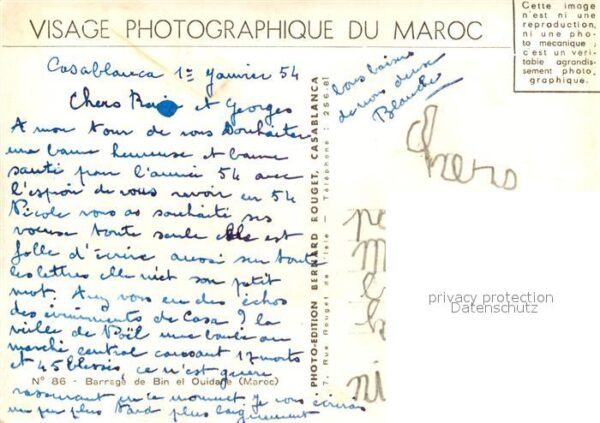 VISAGE PHOTOGRAPHIQUE DU MAROC
Cette image
n'est ni une
reproduction,
ni une photo
mecanique ;
c'est un véri-
table agrandis-
sement photo-
graphique.
Casablanca 1er Janvier 54
Chers et Georges
A mon tour de vous souhaiter
une bonne heureuse et bonne
santé pour l'année 54 avec
l'espoir de vous revoir en 54
Nicole vous as souhaité ses
voeux toute seule elle est
folle d'écrire aussi sur toute
les lettres elle met son petit
mot. Avez vous eu des échos
des évènements de Casa ? la
veille de Noël une bombe au
marché central causant 17 morts
et 45 blessés, ce n'est guère
rassurant en ce moment je vous écrirai
un peu plus tard plus longuement
bons baisers
de nous deux
Blanche
Chers
pe
m
ni
PHOTO-EDITION BERNARD ROUGET, CASABLANCA
7, Rue Rouget de l'Isle — Téléphone : 256-81
N° 86 - Barrage de Bin el Ouidane (Maroc)
privacy protection
Datenschutz